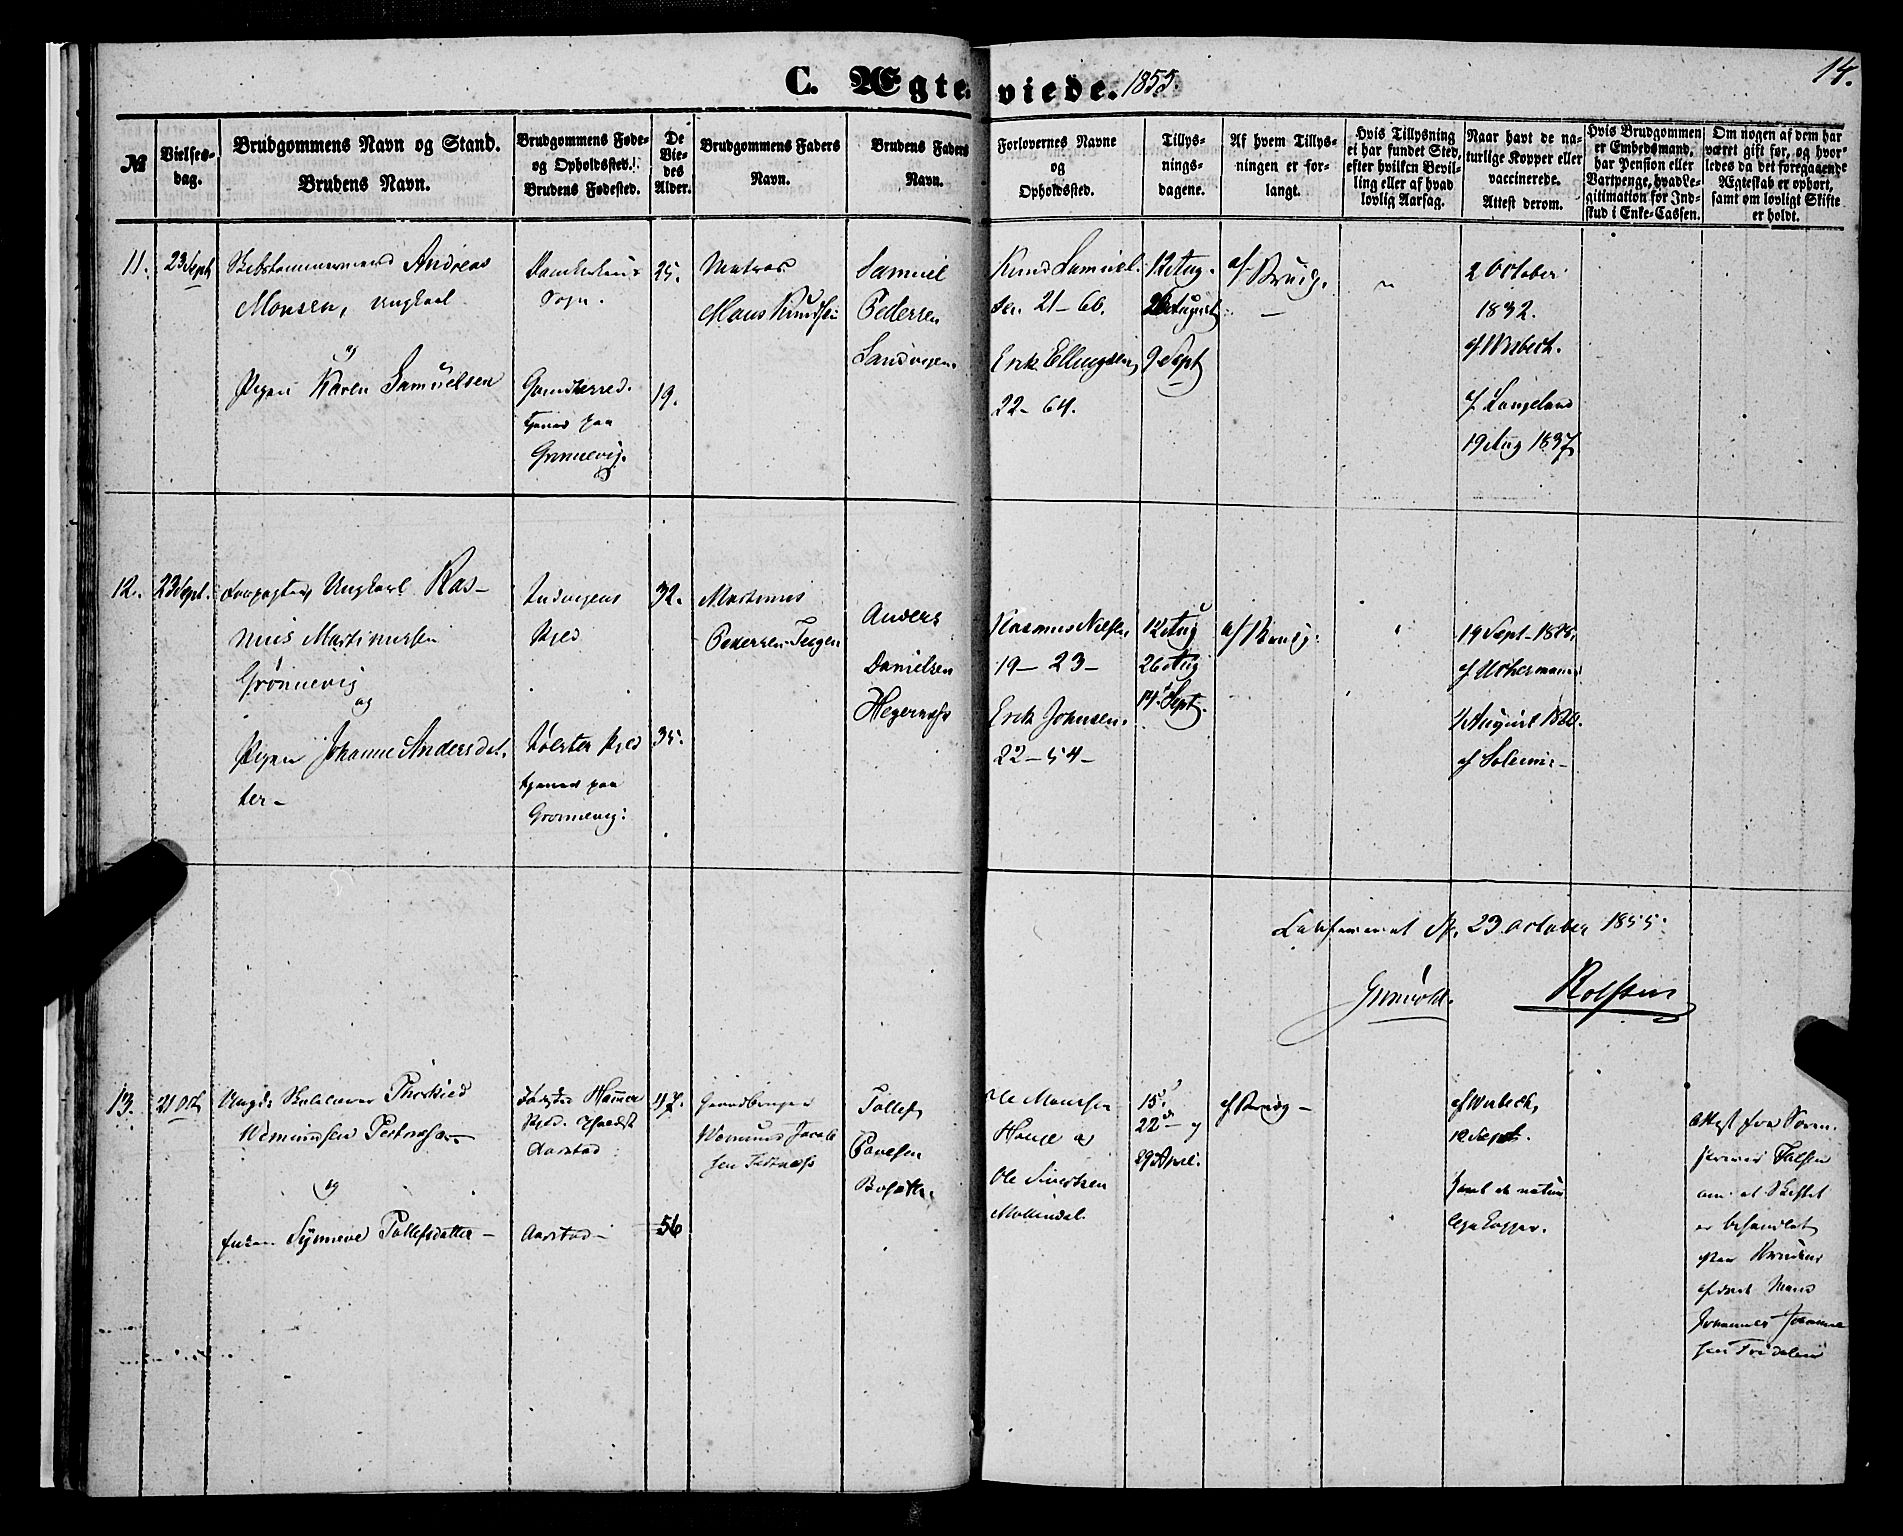 C. Ægteviede. 1855.
14.
№
Vielses-
dag.
Brudgommens Navn og Stand.
Brudens Navn.
Brudgommens Føde-
og Opholdssted.
Brudens Fødested.
De
Vie-
des
Alder.
Brudgommens Faders
Navn.
Brudens Faders
Navn.
Forlovernes Navne
og
Opholdssted.
Tillys-
nings-
dagene.
Af hvem Tillys-
ningen er for-
langt.
Hvis Tillysning
ei har fundet Sted,
efter hvilken Bevil-
ling eller af hvad
lovlig Aarsag.
Naar havt de na-
turlige Kopper eller
vaccinerede.
Attest derom.
Hvis Brudgommen
er Embedsmand,
har Pension eller
Vartpenge, hvad Le-
gitimation for Ind-
skud i Enke-Cassen.
Om nogen af dem har
været gift før, og hvor-
ledes da det foregaaende
Ægteskab er ophørt,
samt om lovligt Skifte
er holdt.
11.
23 Sept
Andreas
Monsen, Ungkarl
og
Pigen Karen Samuelsen
Sogn.
tjener paa
Grønnevig.
25.
19.
Matros
Mons Knudsen
Samuel
Pedersen
Sandvigen
Knud Samuel-
sen 21-66.
Erik Ellingsen
22-64.
12 Aug.
26 August
9 Sept
af Brudg.
2 October
1832.
af Wisbech.
af Langeland
19 Aug 1837
12.
23 Sept.
Ungkarl Ras-
mus Martinussen
Grønnevig
og
Pigen Johanne Andersdat-
ter-
Indvigens
Pjeld
Jølster Pjeld
tjener paa
Grønnevig.
32.
35.
Martinus
Pedersen Teigen
Anders
Danielsen
Hegernæss
Rasmus Nielsen
19-23-
Erik Johnsen.
22-54-
12 Aug
26 Aug
14 Sept.
af Brudg.
19 Sept-
August
23 October 1855.
Rolfsen
13.
21 Oct
og
Synneve Tollefsdatter-
Aarstad
Aarstad-
47.
56
Tollef
Povelsen
Ole Monsen
Hauge og
Ole Sivertsen
Møllendal.
15
22 og
29 April.
af Brudg-
af Wisbech,
12 Sept.
havt de natur-
lige Kopper.
Attest fra Soren-
skriver Falsen
om at Skiftet
er behandlet
efter Brudens
afdøde Mand
Johannes Johannes-
sen Fridalen